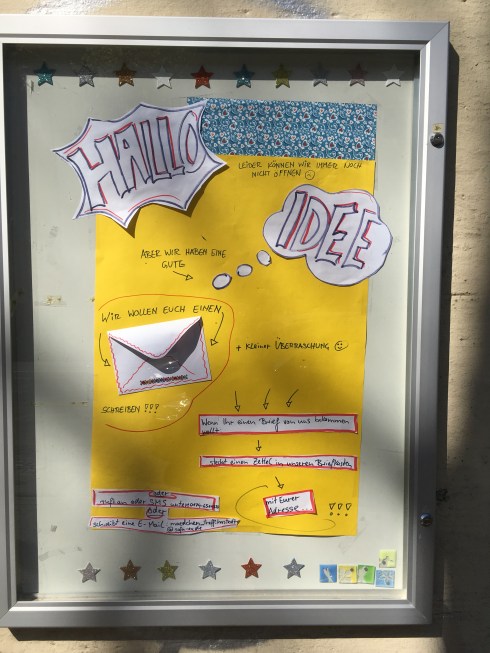 HALLO
LEIDER KÖNNEN WIR IMMER NOCH
NICHT ÖFFNEN
IDEE
ABER WIR HABEN EINE
GUTE
WIR WOLLEN EUCH EINEN
SCHREIBEN !!!
+ KLEINER ÜBERRASCHUNG
Wenn Ihr einen Brief von uns bekommen
wollt
einen Zettel in unseren Briefkasten
mit Eurer
Adresse...
!!!
oder
oder SMS
oder
schreibt eine E-Mail